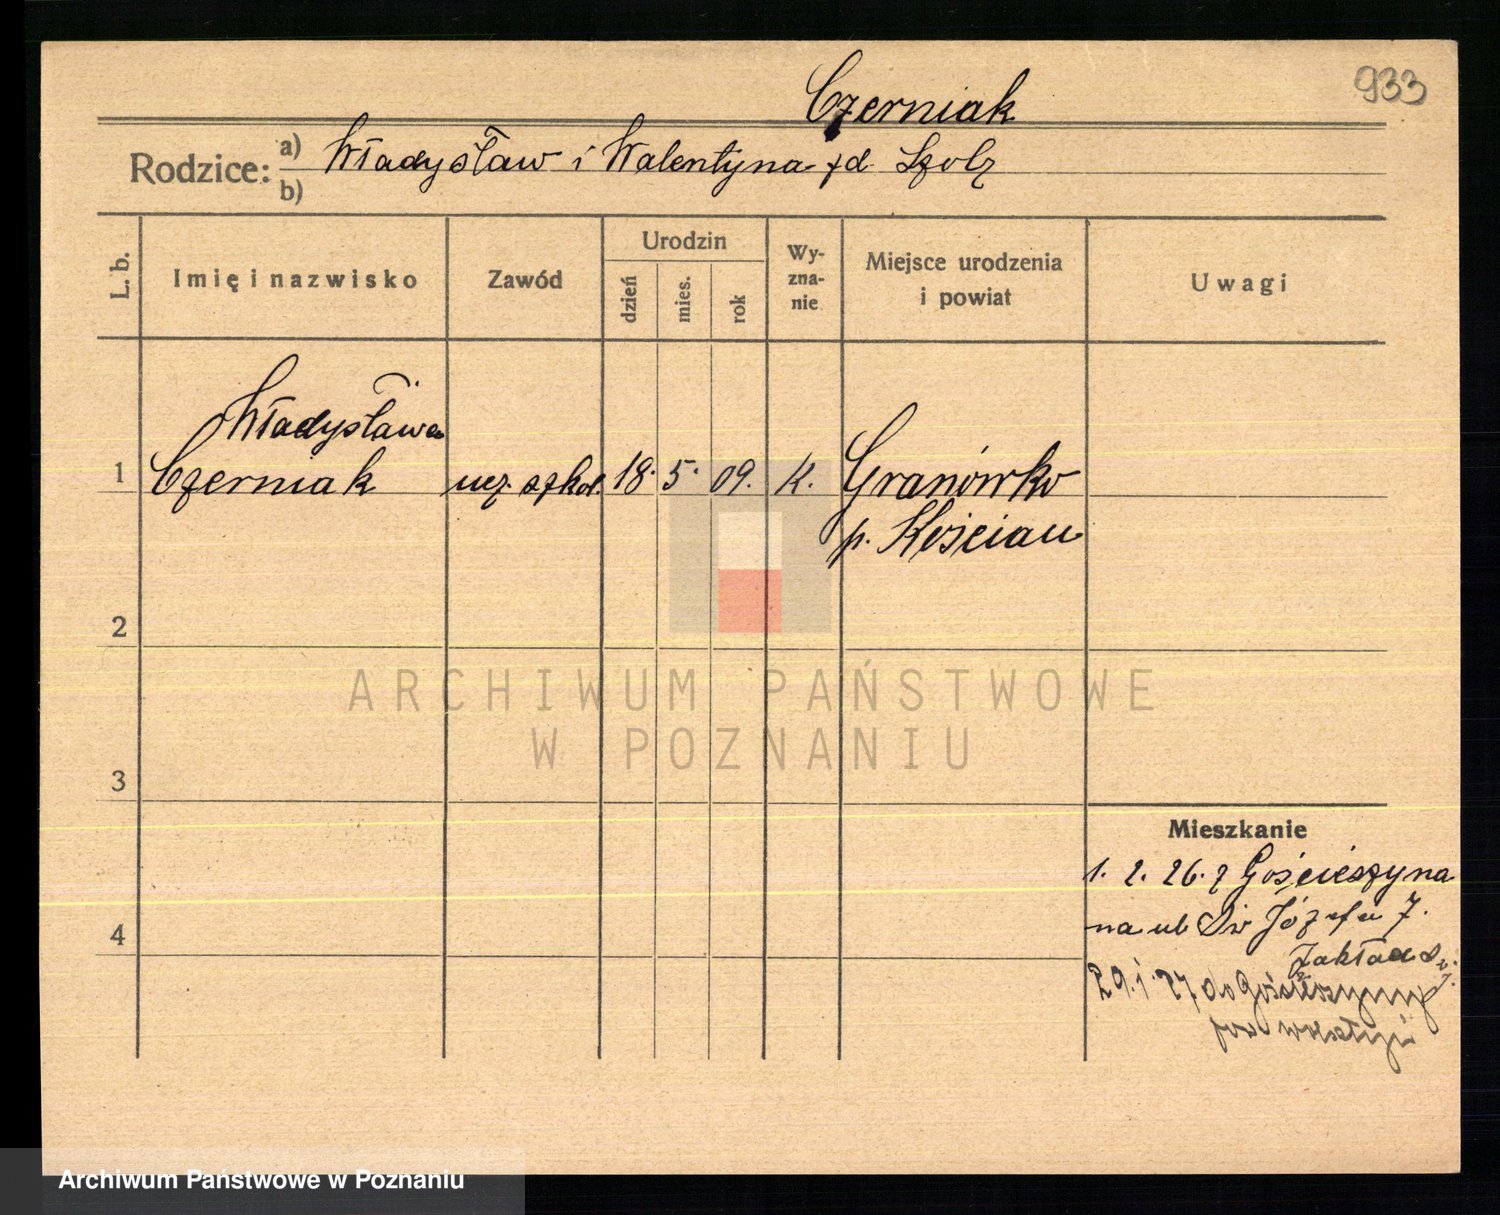 933
Czerniak
Rodzice: a) Władysław i Walentyna zd Szolz
b)
L. b.
Imię i nazwisko
Zawód
Urodzin
dzień
mies.
rok
Wy-
zna-
nie
Miejsce urodzenia
i powiat
Uwagi
1
Władysława
Czerniak
ucz. szkol.
18.
5.
09.
K.
Granówko
p. Kościan
2
3
4
ARCHIWUM PAŃSTWOWE
W POZNANIU
Mieszkanie
1. 2. 26. z Gościeszyna
na ul Św Józefa 7.
Zakład Św. J.
29. 1. 27 do Gościeszyny
pow
Archiwum Państwowe w Poznaniu